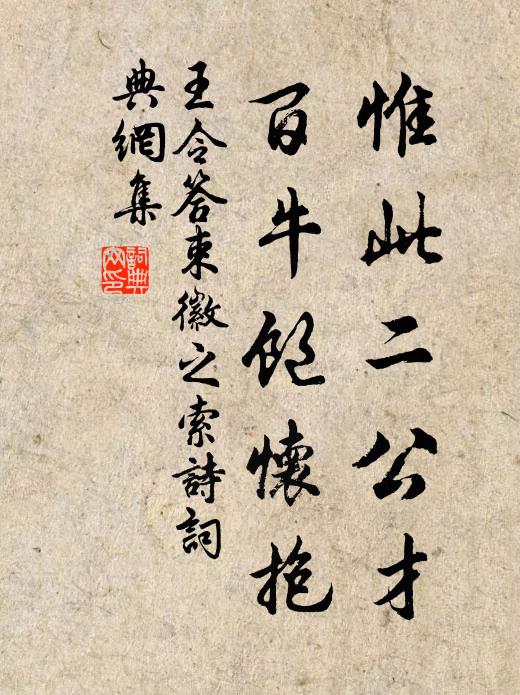 惟此二公才
百牛飽懷抱
王令答束徽之索詩詞
典網集
詞典網印